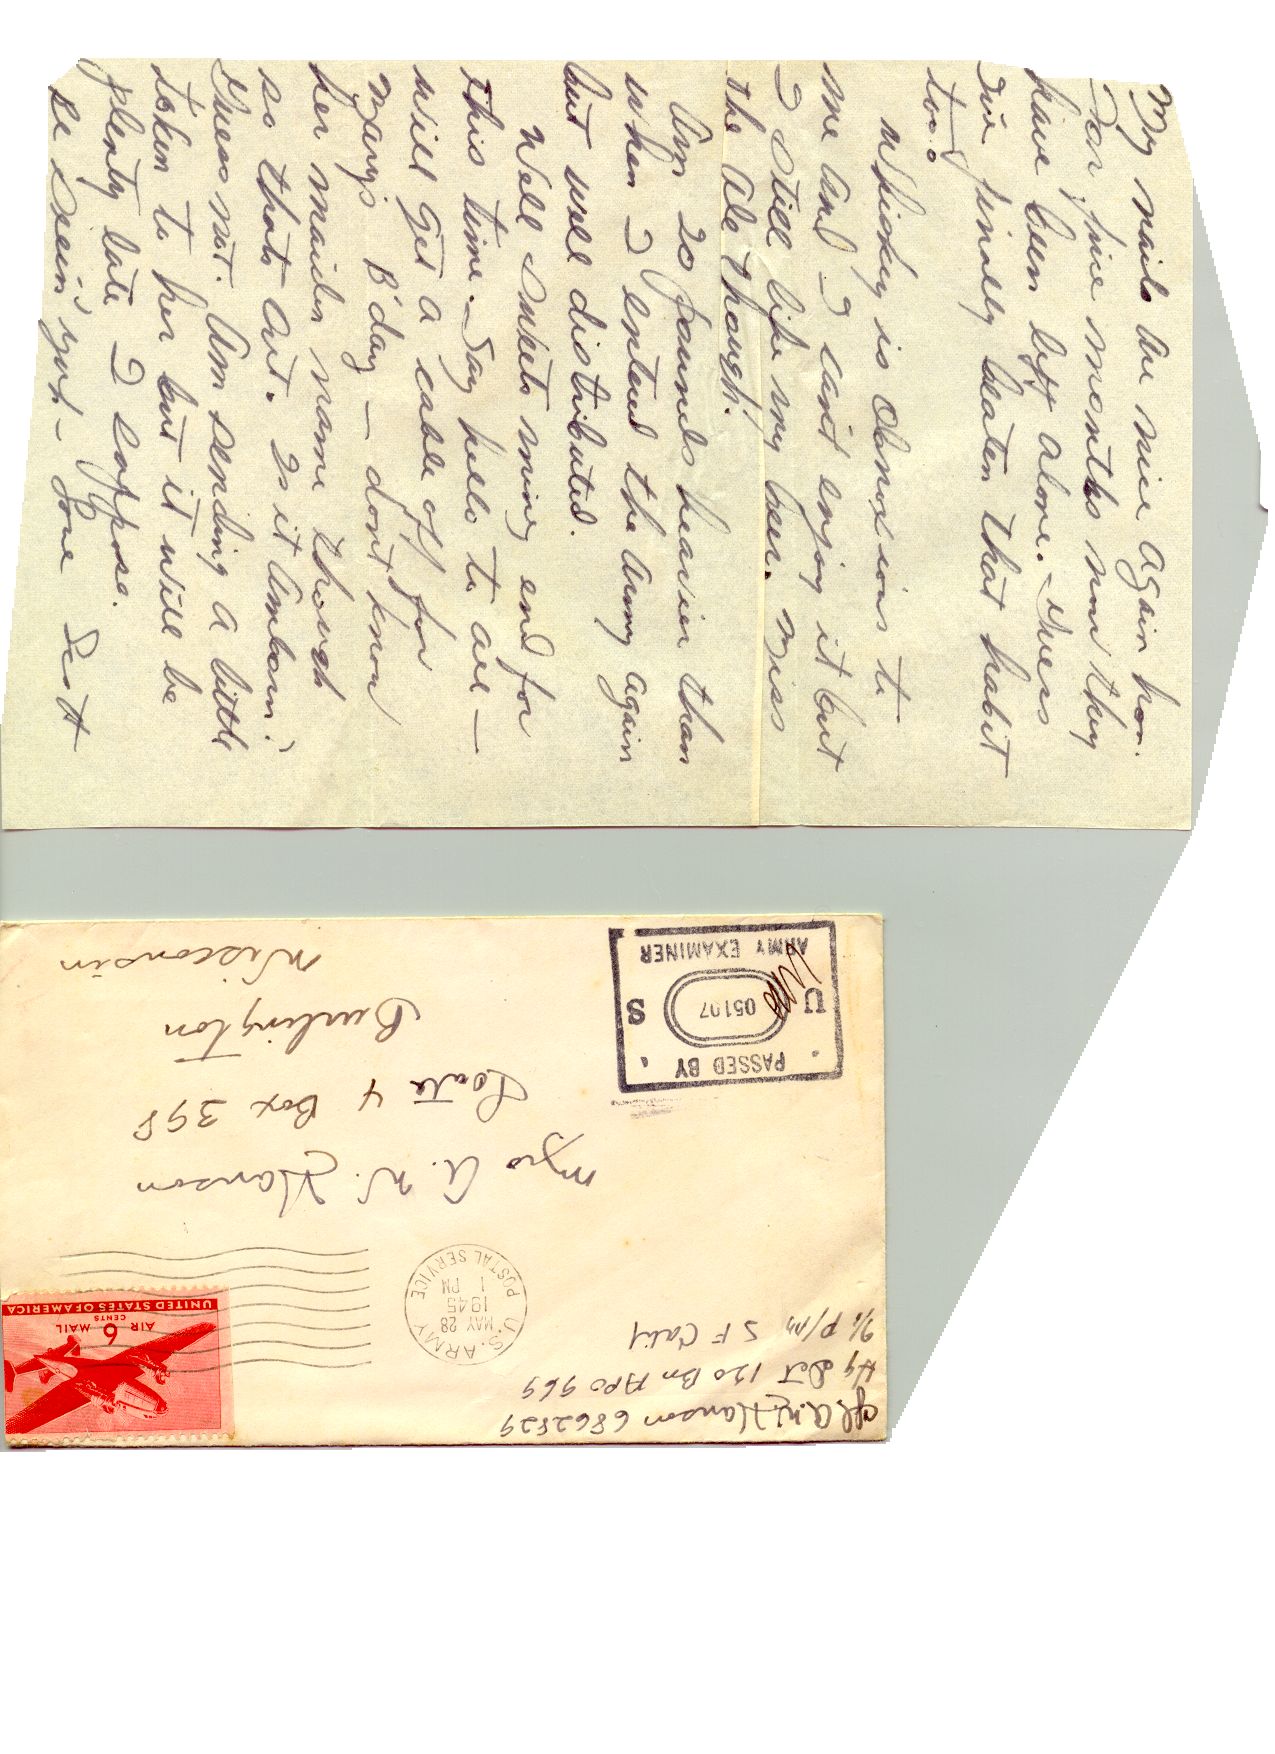 My nails are nice again hon.
For five months now they
have been left alone. Guess
I've finally beaten that habit
too.
Whiskey is obnoxious to
me and I can't enjoy it but
I still like my beer. Miss
the ale though!
Am 20 pounds heavier than
when I entered the Army again
but well distributed.
Well Sweets mine, end for
this time. Say hello to all —
Will get a cable off for
Mary's B'day — don't know
her maiden name though
so thats out. Is it
Guess not. Am sending a little
token to her but it will be
plenty late I suppose.
Be seein' you! — Love
Cpl. A.W. Hanson 6862829
Hq Det 120 Bn APO 969
℅ P/M S F Calif
U.S. ARMY
MAY 28
1945
1 PM
POSTAL SERVICE
AIR 6 MAIL
CENTS
UNITED STATES OF AMERICA
Mrs A. W. Hanson
Route 4 Box 398
Burlington
Wisconsin
PASSED BY
U 05107 S
ARMY EXAMINER